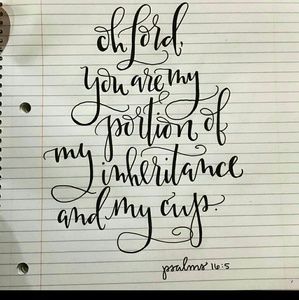 oh Lord,
you are my
portion of
my inheritance
and my cup.
psalms 16:5